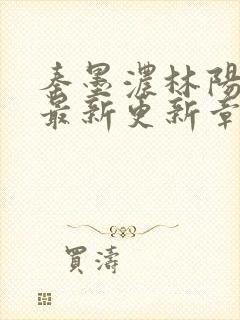 秦墨濃林陽
最新更新章
買濤